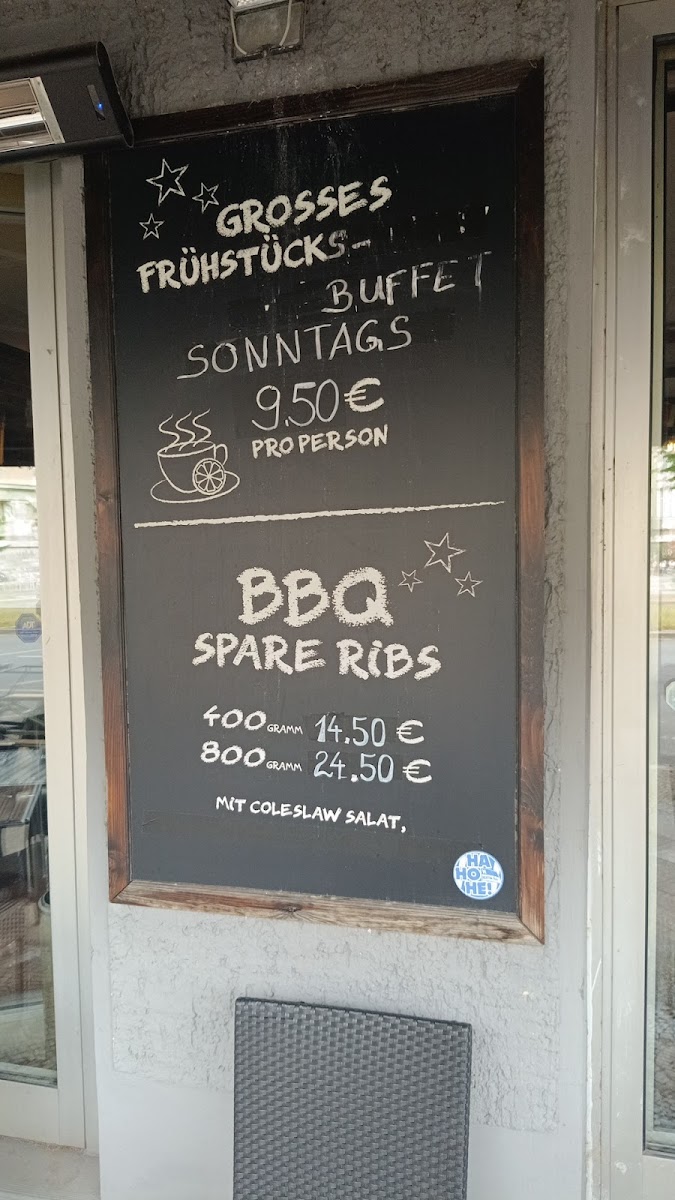 GROSSES
FRÜHSTÜCKS-
BUFFET
SONNTAGS
9.50 €
PRO PERSON
BBQ
SPARE RIBS
400 GRAMM 14.50 €
800 GRAMM 24.50 €
MIT COLESLAW SALAT,
HA
HO
HE!